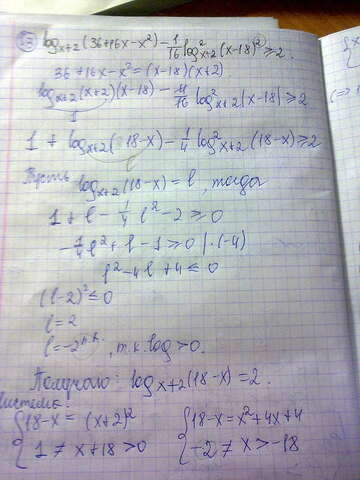 log_{x+2}(36+16x-x²) - 1/16 log²_{x+2}(x-18)² ≥ 2.
36+16x-x² = (x-18)(x+2)
log_{x+2}(x+2)(x-18) - 4/16 log²_{x+2}|x-18| ≥ 2
1 + log_{x+2}(18-x) - 1/4 log²_{x+2}(18-x) ≥ 2
Пусть log_{x+2}(18-x) = l, тогда
1 + l - 1/4 l² - 2 ≥ 0
-1/4 l² + l - 1 ≥ 0 |·(-4)
l² - 4l + 4 ≤ 0
(l-2)² ≤ 0
l = 2
l = -2 п.к., т.к. log > 0.
Получаю: log_{x+2}(18-x) = 2.
Система
{18-x = (x+2)² {18-x = x²+4x+4
{1 ≠ x+18 > 0 {-2 ≠ x > -18